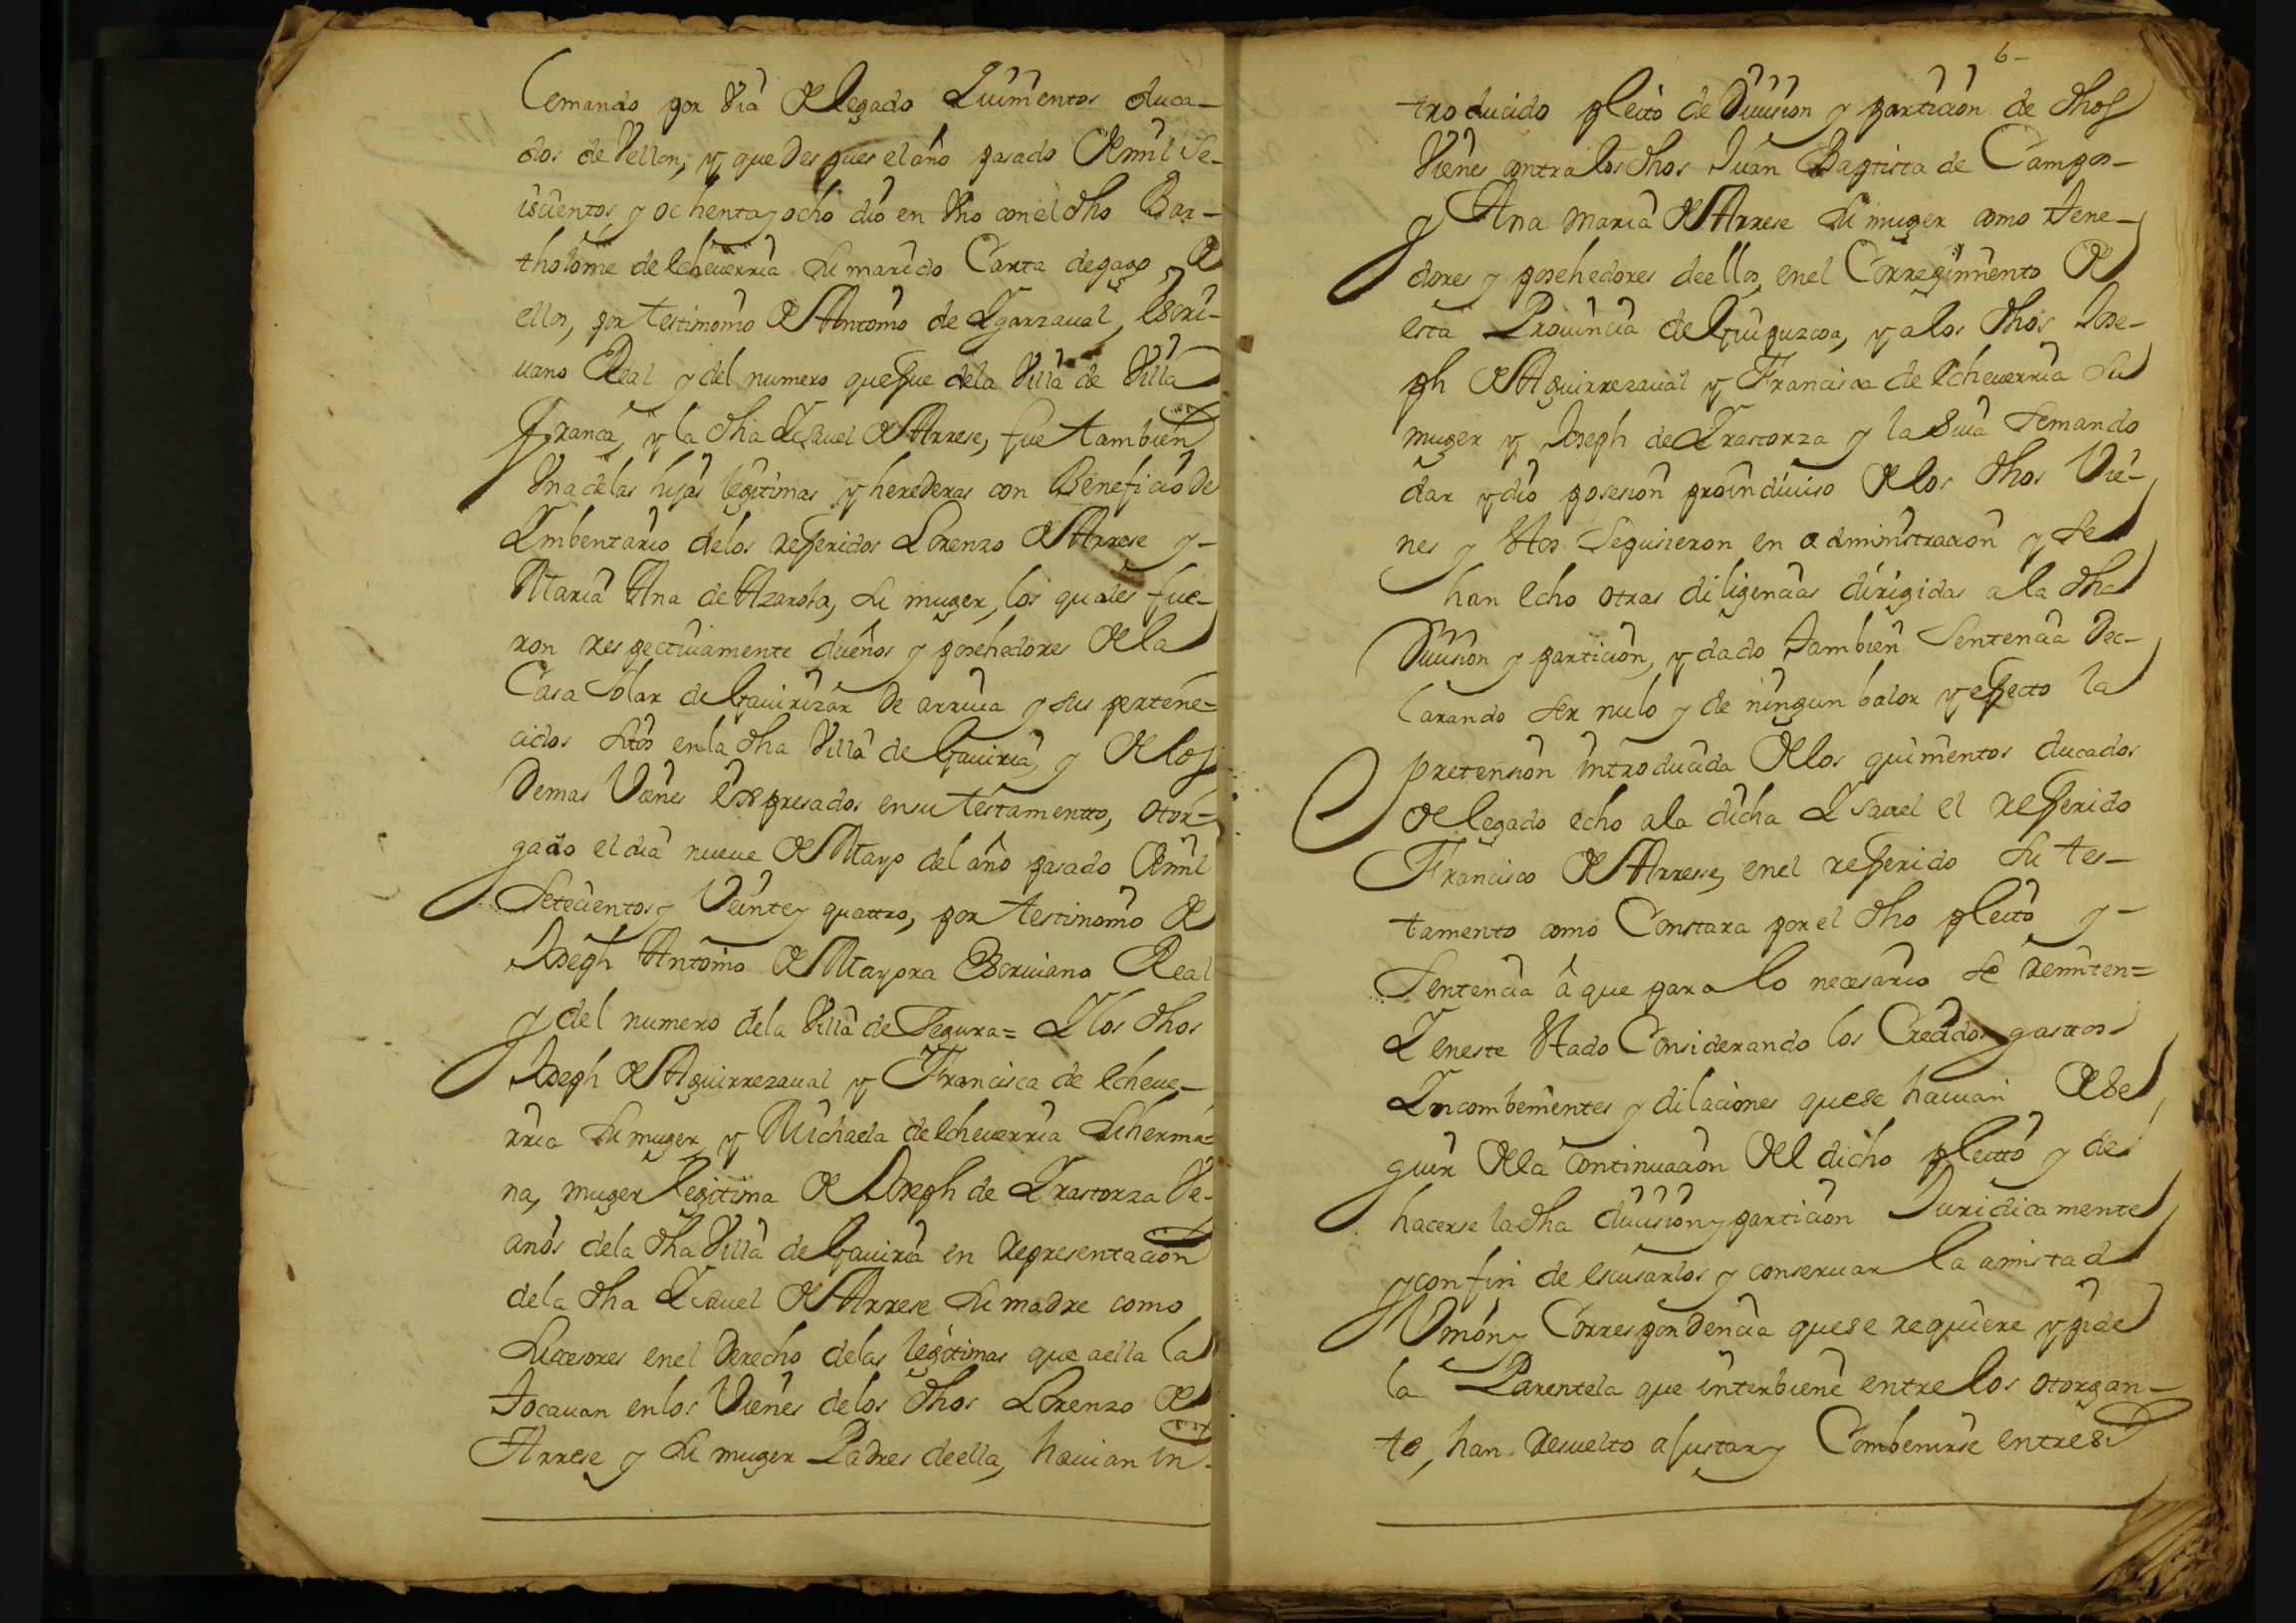 lemando por Via de legado Quinientos duca-
dos de Vellon, y que Despues el año pasado de mil Se-
iscientos, y ochenta y ocho dio en Vno con el dho Bar-
tholome de Echeuerria Su marido Carta de pago, de
ellos, por testimonio de Antonio de Ygarzaual, Escri-
uano Real y del numero que fue dela Villa de Villa
franca, y la dha Ysauel de Arrese, fue tambien
Vna delas hijas legitimas y herederas con Beneficio De
Ymbentario delos referidos Lorenzo de Arrese y-
Maria Ana de Azarola, Su muger, los quales fue-
ron respectiuamente dueños y posehedores de la
Casa Solar de Gauirizar De arriua y sus pertene=
cidos Sitos en la dha Villa de Gauiria, y de los
Demas Vienes Expresados en su testamentto, otor-
gado el dia nueue de Mayo del año pasado de mil
Setecientos y Veinte y quattro, por testimonio de
Joseph Antonio de Mayora Escriuano Real
y del numero dela Villa de Segura= Y los dhos
Joseph de Aguirrezaual y Francisca de Echeue-
rria Su muger, y Michaela de Echeuerria Su herma=
na, muger legitima de Joseph de Yrastorza Ve-
cinos dela dha Villa de Gauiria en representacion
dela dha Ysauel de Arrese Su madre como
Sucesores en el Derecho delas legitimas que a ella la
tocauan en los Vienes delos dhos Lorenzo de
Arrese y Su muger Padres de ella, hauian in-
6-
troducido pleito de Diuision y particion de dhos
Vienes contra los dhos Juan Baptista de Campos-
y Ana Maria de Arrese Su muger como tene-
dores y posehedores de ellos, en el Corregimiento de
esta Prouincia de Guipuzcoa, y a los dhos Jose-
ph de Aguirrezaual y Francisca de Echeuerria Su
muger y Joseph de Yrastorza y la Suia Se mando
dar y dio posesion proindiuiso de los dhos Vie-
nes y Stos Se pusieron en administracion y Se
han echo otras diligencias dirigidas a la dha
Diuision y particion, y dado tambien Sentencia Dec-
larando Ser nulo y de ningun balor y efecto la
pretension introducida de los quinientos ducados
de legado echo a la dicha Ysauel el referido
Francisco de Arrese, en el referido Su tes-
tamento como Constara por el dho pleito y-
Sentencia â que para lo necesario Se remiten=
Y en este Stado Considerando los Crecidos gastos
Yncombenientes y dilaciones que se hauian de Se
guir de la Continuacion del dicho pleitto y de
hacerse la dha diuision y particion Juridicamente
y con fin de escusarlos y conseruar la amistad
Vnion y Correspondencia que se requiere y pide
la Parentela que interbiene entre los otorgan-
tes, han resuelto ajustar y Combenirse entre Si